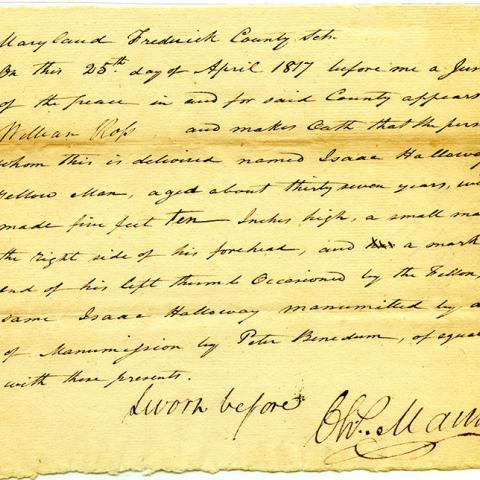 Maryland Frederick County Sch.
On this 25th day of April 1817 before me a Jus
of the peace in and for said County appears
William Ross and makes Oath that the pers
whom this is delivered named Isaac Halloway
Yellow Man, aged about thirty seven years, we
made five feet ten Inches high, a small ma
the right side of his forehead, and a mark
end of his left thumb Occasioned by the Fellon,
same Isaac Halloway manumitted by a
of Manumission by Peter Benedum, of equal
with these presents.
Sworn before